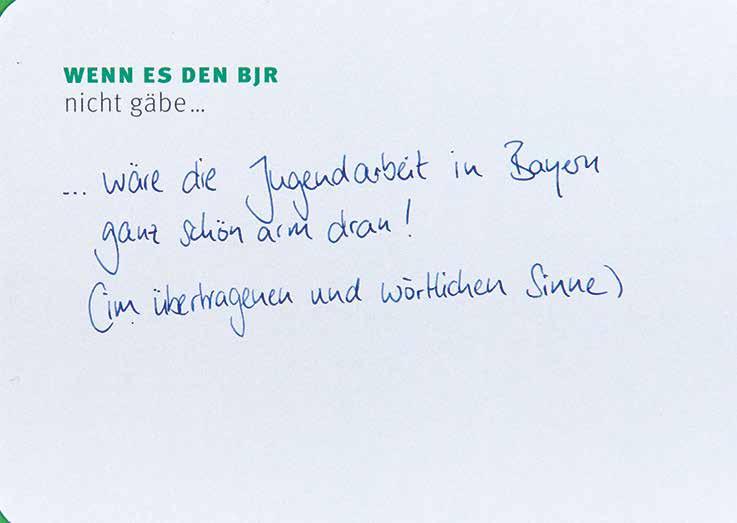 WENN ES DEN BJR
nicht gäbe...
... wäre die Jugendarbeit in Bayern
ganz schön arm dran!
(im übertragenen und wörtlichen Sinne)